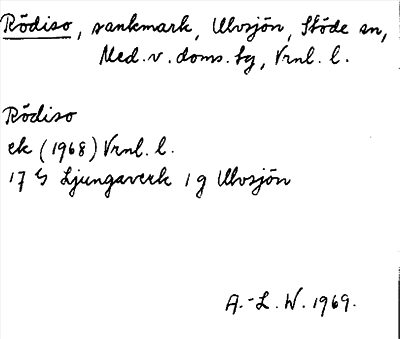 Rödiso, sankmark, Ulvsjön, Stöde sn,
Med. v. doms. tg, Vrnl. l.
Rödiso
ek (1968) Vrnl. l.
17 G Ljungaverk 1 g Ulvsjön
A.-L. W. 1969.